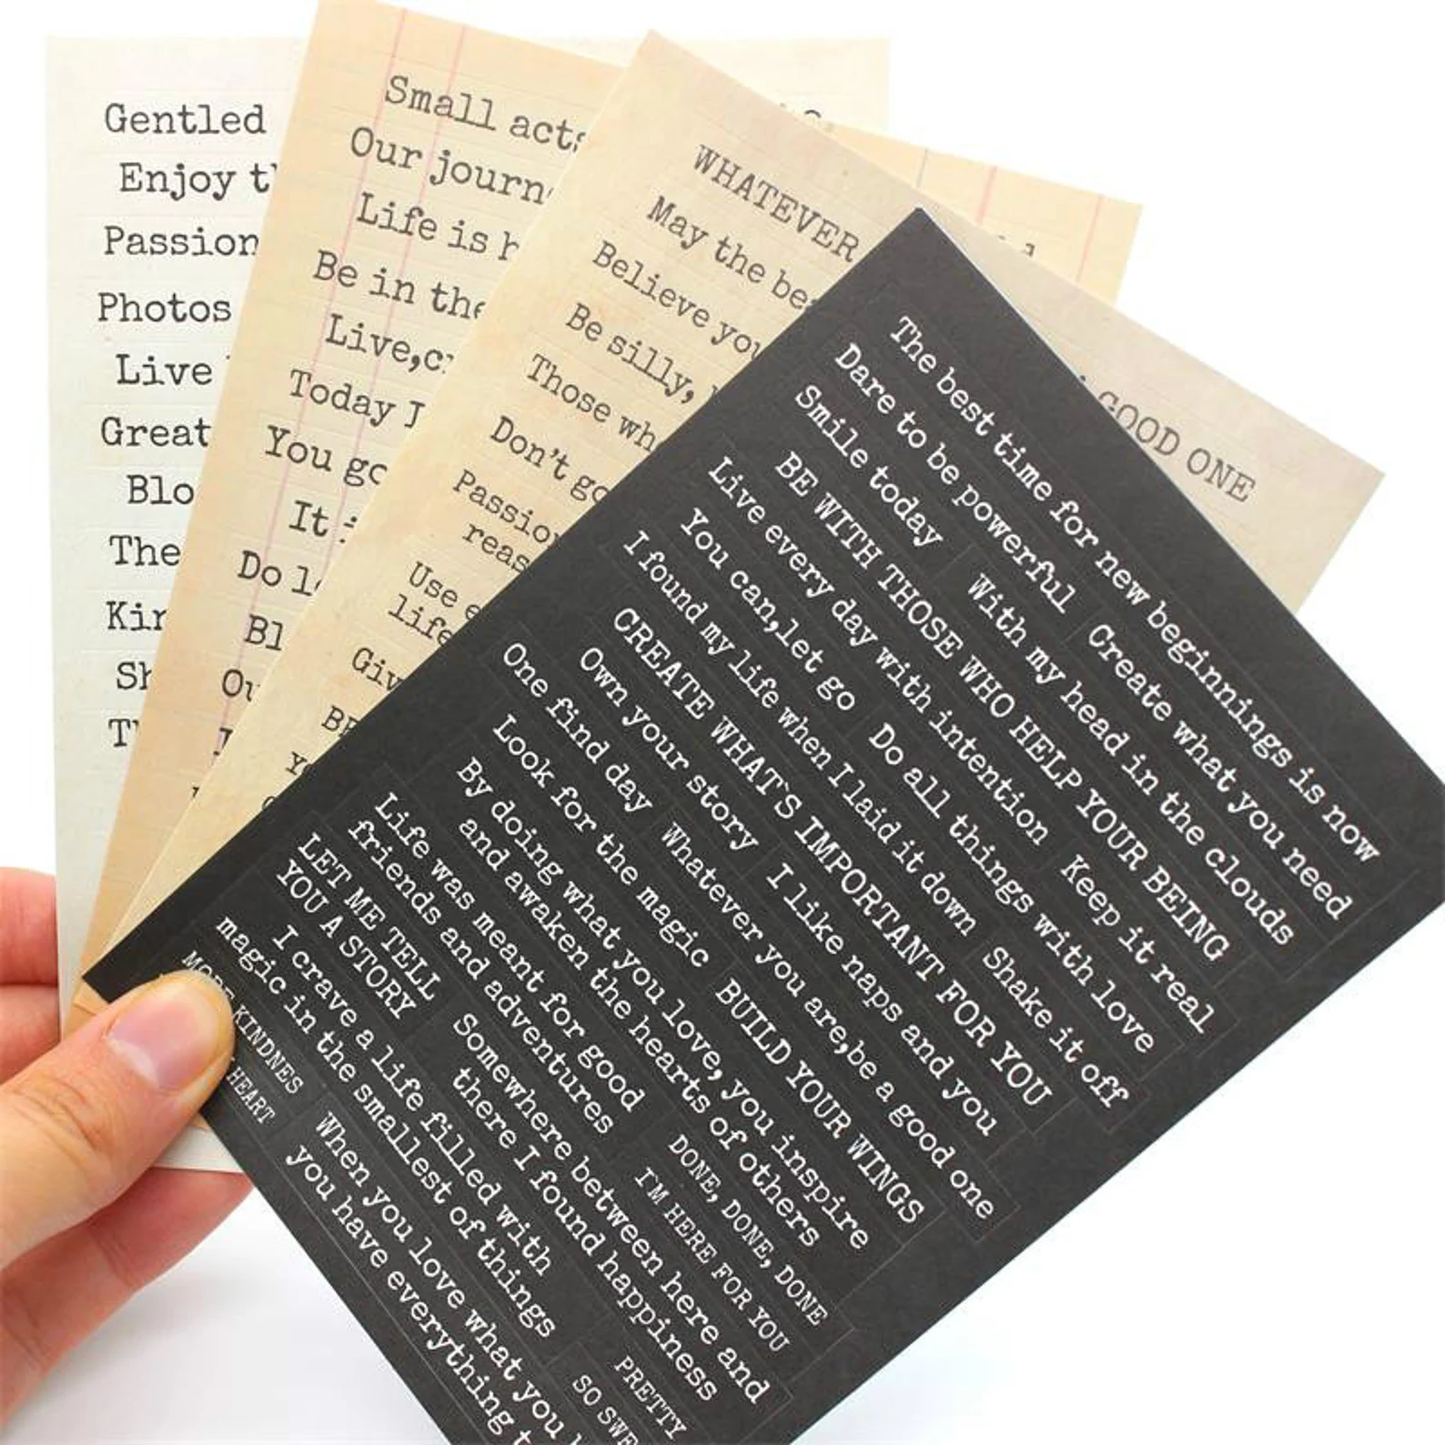 Gentled
Enjoy
Passion
Photos
Live
Great
The
Small acts
Our
Life is
Be in the
Today
You go
It
Do
WHATEVER
A GOOD ONE
May the
Believe you
Be silly,
Those
Don't go
Use
life
The best time for new beginnings is now
Dare to be powerful
Create what you need
Smile today
With my head in the clouds
BE WITH THOSE WHO HELP YOUR BEING
Live every day with intention
Keep it real
You can,let go
Do all things with love
I found my life when I laid it down
Shake it off
CREATE WHAT`S IMPORTANT FOR YOU
Own your story
I like naps and you
One find day
Whatever you are,be a good one
Look for the magic
BUILD YOUR WINGS
By doing what you love, you inspire
and awaken the hearts of others
Life was meant for good
friends and adventures
DONE, DONE, DONE
I'M HERE FOR YOU
LET ME TELL
YOU A STORY
Somewhere between here and
there I found happiness
I crave a life filled with
magic in the smallest of things
PRETTY
SO
MORE KINDNES
HEART
When you love what you
you have everything